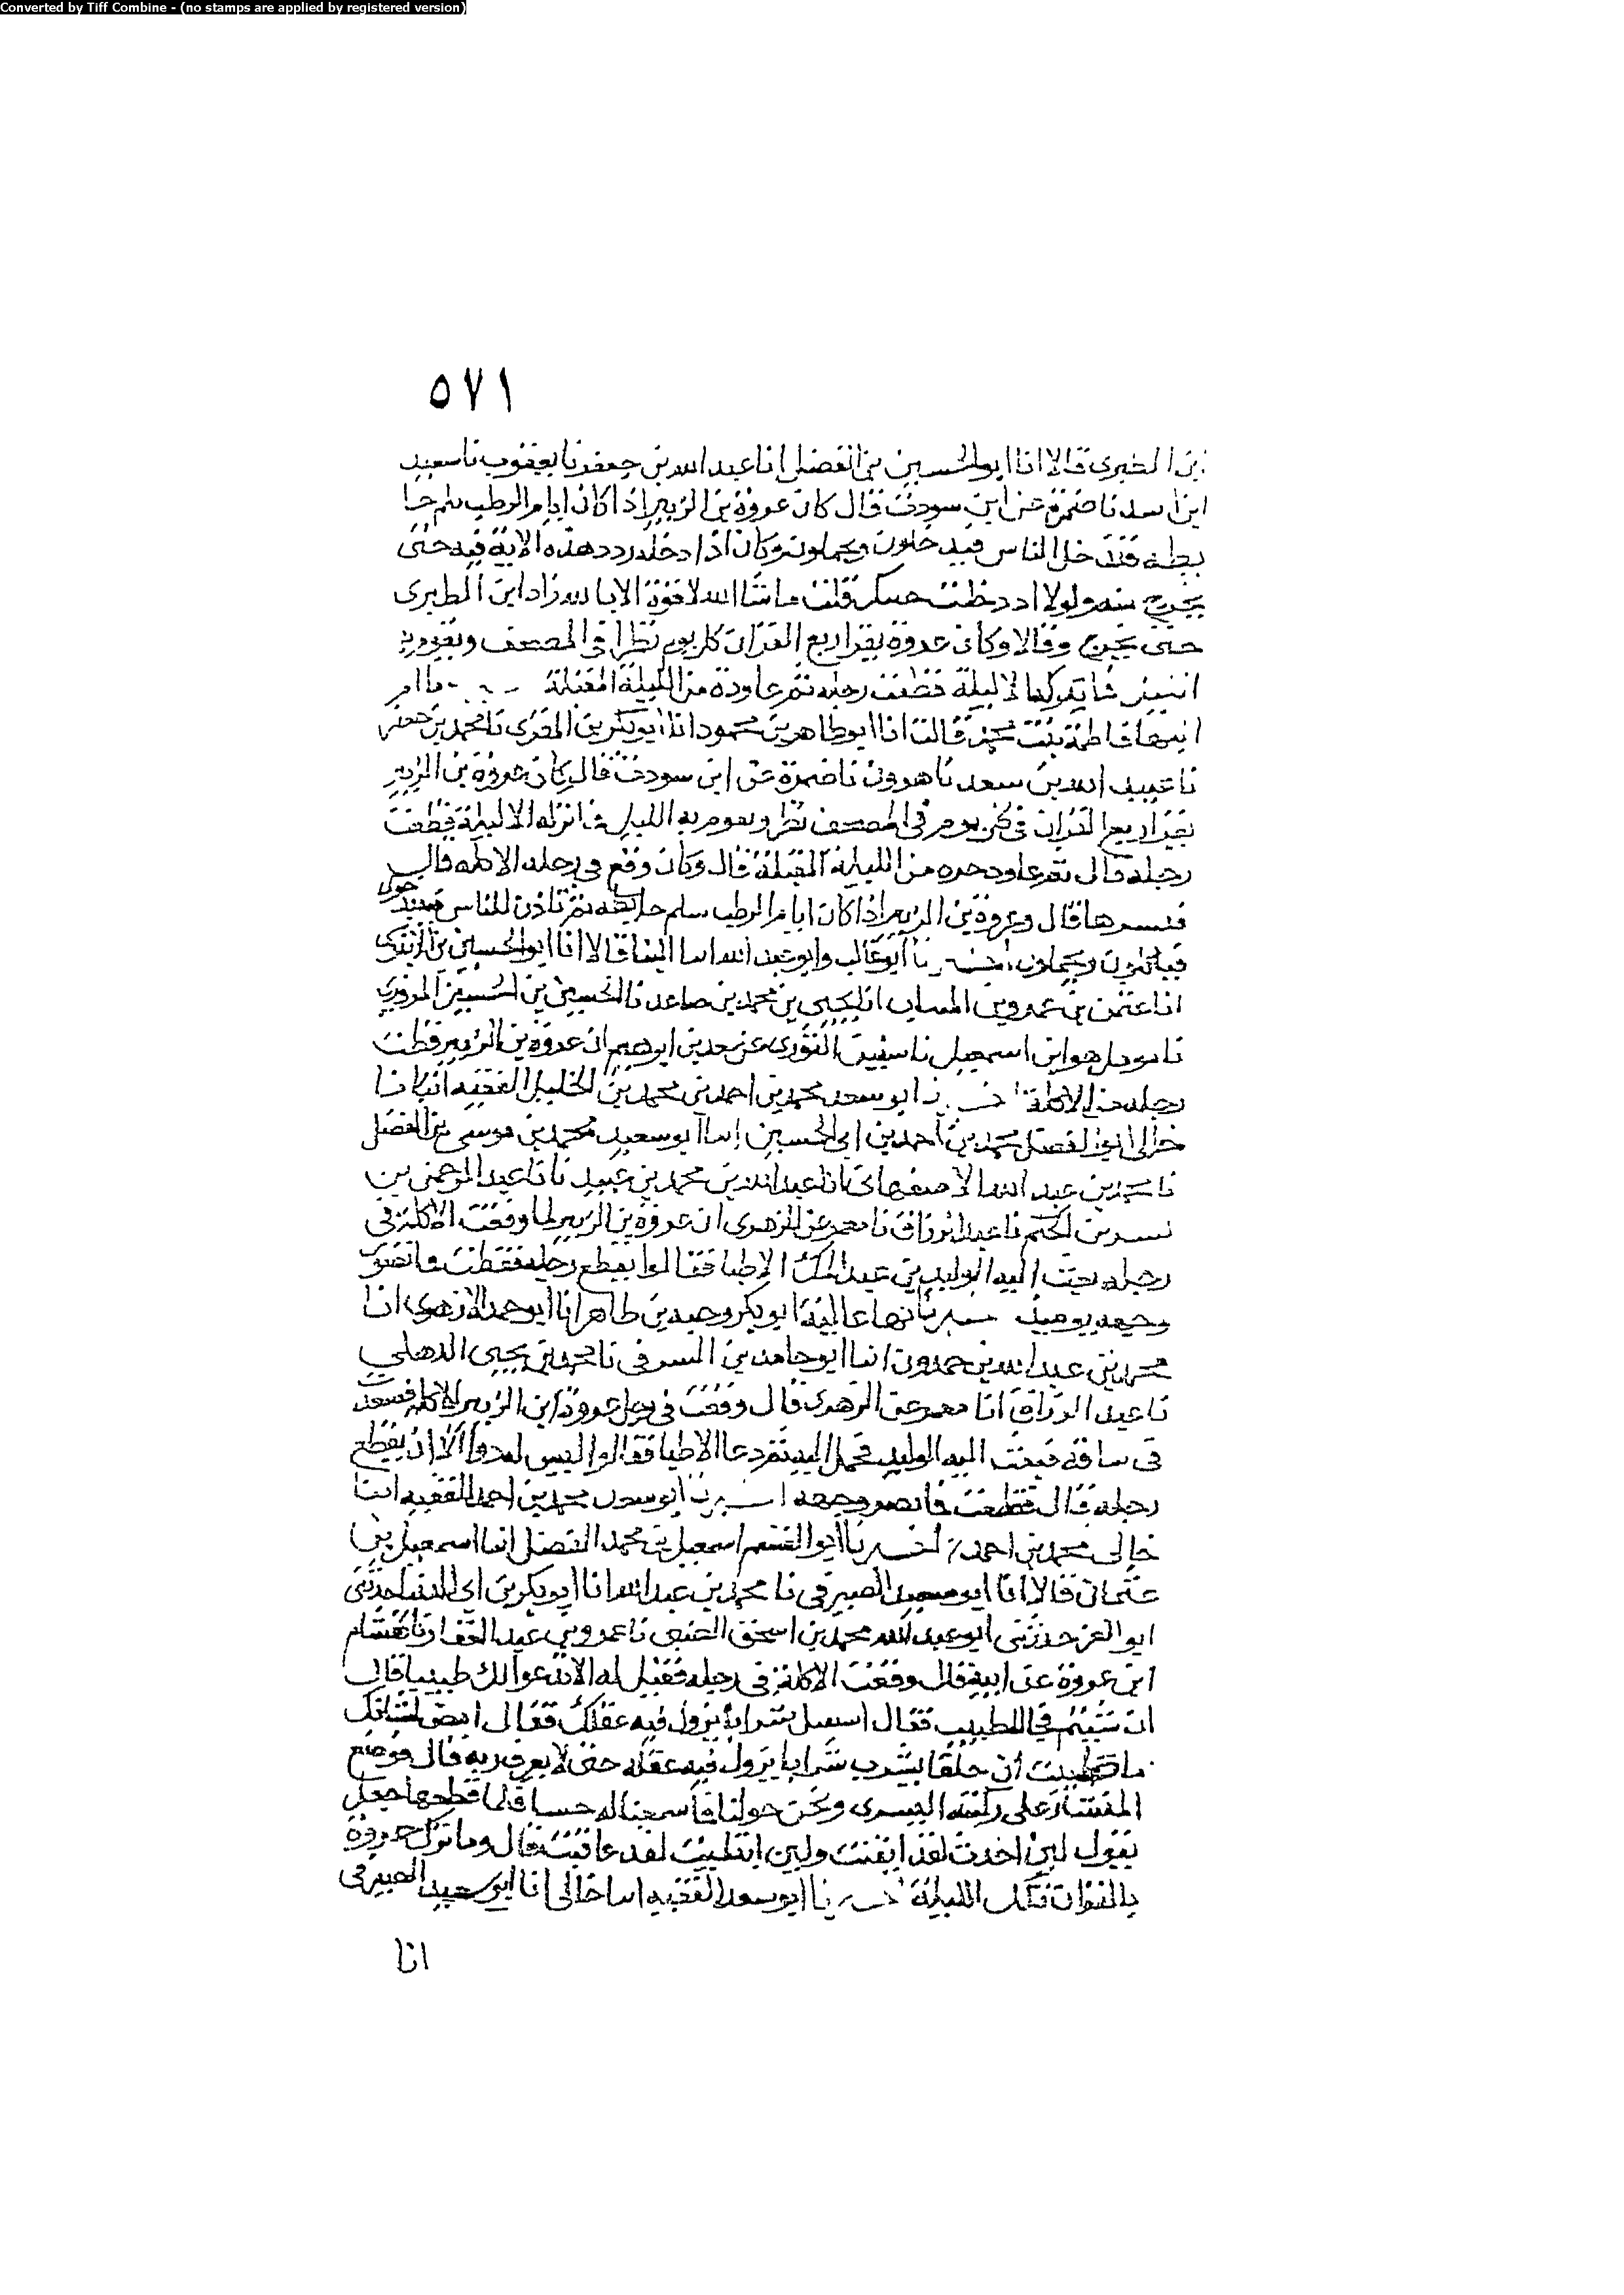 Converted by Tiff Combine - (no stamps are applied by registered version)
٥٧١
ابن الطبري قالا انا ابو الحسين بن الفضل انا عبد الله بن جعفر نا يعقوب نا سعيد
ابن اسد نا ضمرة عن ابن سودب قال كان عروة بن الزبير اذا كان ايام الرطب ثلم حا
يطه فيدخل الناس فيدخلون ويحملون وكان اذا دخله ردد هذه الاية فيه حتى
يخرج منه ولولا اد دخلت جنتك قلت ما شا الله لا قوة الا بالله زاد ابن الطبري
حتى يخرج وقالا وكان عروة يقرا ربع القران كل يوم نظرا في المصحف ويقوم به
الليل فما تركها الا ليلة قطعت رجله ثم عاوده من الليلة المقبلة ام
ابيها فاطمة بنت محمد قالت انا ابو طاهر بن محمود انا ابو بكر بن المقرى نا محمد بن جعفر
نا عبيد الله بن سعد نا هرون نا ضمرة عن ابن سودب قال كان عروة بن الزبير
يقرا ربع القران في كل يوم في المصحف نظرا ويقوم به الليل فما تركه الا ليلة قطعت
رجله قال ثم عاود جزه من الليلة المقبلة قال وكان وقع في رجله الاكله قال
فنسرها قال وعروة بن الزبير اذا كان ايام الرطب ثلم حايطه ثم ياذن للناس فيدخلون
فياكلون ويحملون اخبرنا ابو غالب وابو عبد الله ابنا البنا قالا انا ابو الحسين بن الابنوسي
انا عثمن بن عمرو بن المنتاب انا يحيى بن محمد بن صاعد نا الحسين بن الحسين المروزي
نا مومل هو ابن اسمعيل نا سفين الثوري عن سعد بن ابرهيم ان عروة بن الزبير قطعت
رجله من الاكلة اخبرنا ابو سعد محمد بن احمد بن محمد بن الخليل الفقيه انبانا
خالي ابو الفضل محمد بن احمد بن ابي الحسين انا ابو سعيد محمد بن موسى بن الفضل
نا محمد بن عبد الله الاصفهاني نا عبد الله بن محمد بن عبيد نا عبد الرحمن بن
بشر بن الحكم نا عبد الرزاق نا معمر عن الزهري ان عروة بن الزبير لما وقعت الاكلة في
رجله بعث اليه الوليد بن عبد الملك الاطبا فقالوا يقطع رجله فقطعت فما تضور
وجهه يوميذ اخبرنا بها عالية ابو بكر وجيه بن طاهر انا ابو حمد الازهري انا
محمد بن عبد الله بن حمدون انا ابو حامد بن الشرقي نا محمد بن يحيى الذهلي
نا عبد الرزاق انا معمر عن الزهري قال وقعت في رجل عروة ابن الزبير الاكله فصعدت
في ساقه فبعث اليه الوليد فحمل اليه ثم دعا الاطبا فقالوا ليس له دوا الا ان يقطع
رجله قال فقطعت فما تضور وجهه اخبرنا ابو سعد محمد بن احمد الفقيه انا
خالي محمد بن احمد اخبرنا ابو القسم اسمعيل بن محمد الفضل انا اسمعيل بن
عثمان قالا انا ابو سعيد الصيرفي نا محمد بن عبد الله انا ابو بكر بن ابي الدنيا حدثني
ابو العز حدثني ابو عبد الله محمد بن اسحق الضبي نا عمرو بن عبد الغفار نا هشام
ابن عروة عن ابيه قال وقعت الاكلة في رجله فقيل له الا ندعوا لك طبيبا قال
ان شيتم فجا الطبيب فقال اسقيك شرابا يزول فيه عقلك فقال امض لشانك
ما ظننت ان خلقا يشرب شرابا يزول فيه عقله حتى لا يعرف ربه قال فوضع
المنشار على ركبته اليسرى ونحن حوله فما سمعنا له حسا فلما قطعها جعل
يقول لين اخذت لقد ابقيت ولين ابتليت لقد عافيت قال وما ترك جزوه
بالقران تلك الليلة اخبرنا ابو سعد الفقيه انا خالي انا ابو سعيد الصيرفي
انا